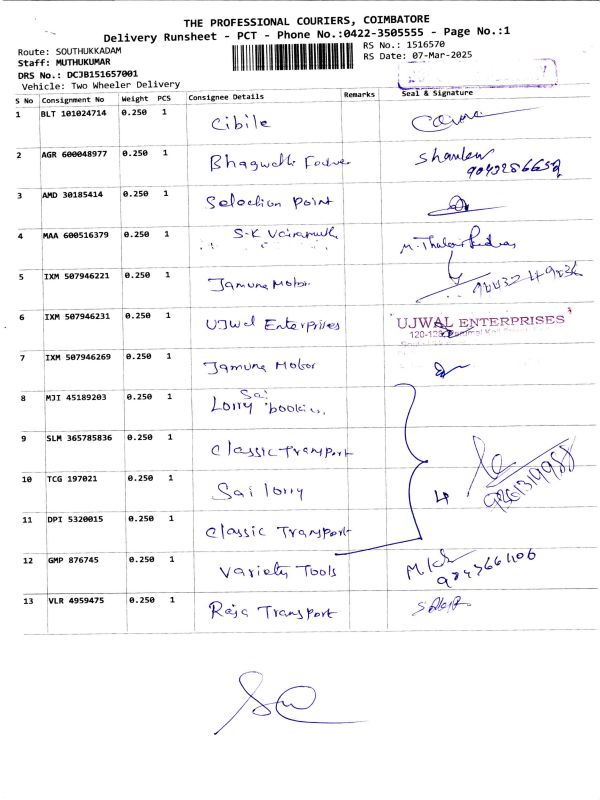 THE PROFESSIONAL COURIERS, COIMBATORE
Delivery Runsheet - PCT - Phone No.:0422-3505555 - Page No.:1
Route: SOUTHUKKADAM RS No.: 1516570
Staff: MUTHUKUMAR RS Date: 07-Mar-2025
DRS No.: DCJB151657001
Vehicle: Two Wheeler Delivery
S No Consignment No Weight PCS Consignee Details Remarks Seal & Signature
1 BLT 101024714 0.250 1 Cibile
2 AGR 600048977 0.250 1 Bhagwathi
3 AMD 30185414 0.250 1 Selection Point
4 MAA 600516379 0.250 1 S.K
5 IXM 507946221 0.250 1 Jamuna Motor
6 IXM 507946231 0.250 1 UJwal Enterprises UJWAL ENTERPRISES
7 IXM 507946269 0.250 1 Jamuna Motor
8 MJI 45189203 0.250 1 Sai Lorry
9 SLM 365785836 0.250 1 Classic Transport
10 TCG 197021 0.250 1 Sai lorry 4
11 DPI 5320015 0.250 1 Classic Transport
12 GMP 876745 0.250 1 Variety Tools
13 VLR 4959475 0.250 1 Raja Transport